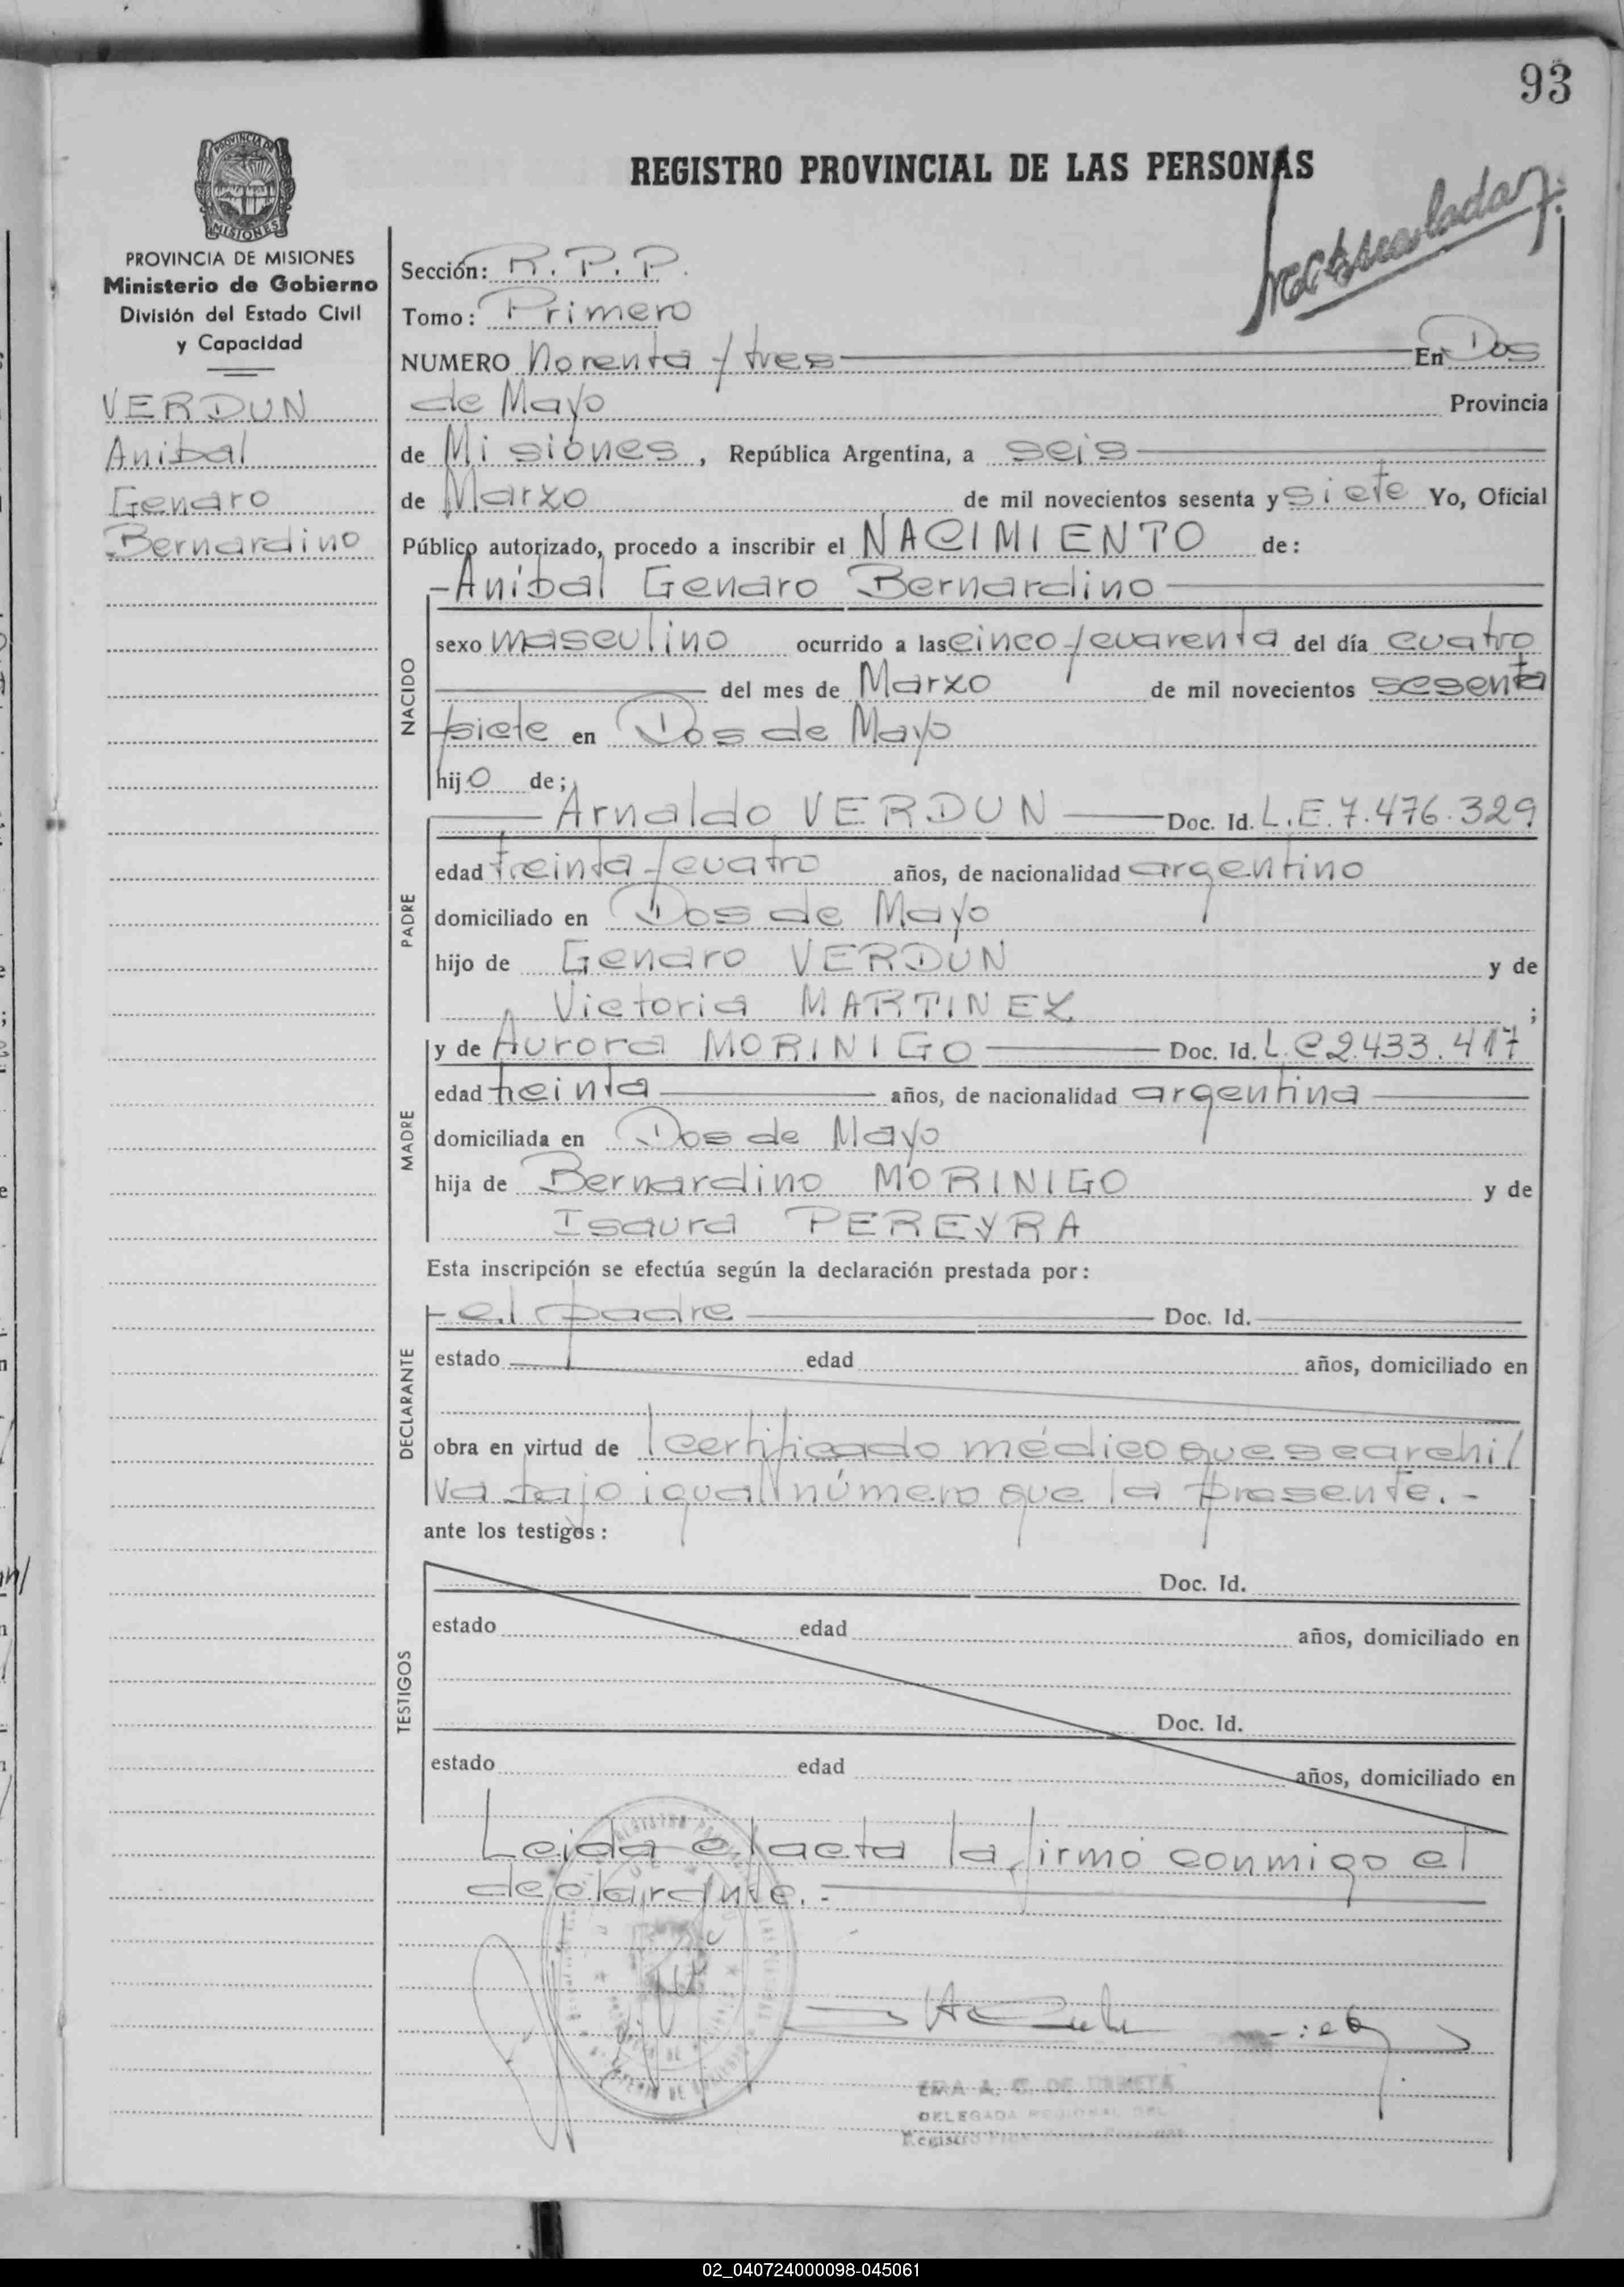 93
REGISTRO PROVINCIAL DE LAS PERSONAS
PROVINCIA DE
MISIONES
PROVINCIA DE MISIONES
Ministerio de Gobierno
División del Estado Civil
y Capacidad
VERDUN
Anibal
Genaro
Bernardino
Sección: R. P. P.
Tomo: Primero
NUMERO Noventa y tres En Dos
de Mayo Provincia
de Misiones, República Argentina, a seis
de Marzo de mil novecientos sesenta y siete Yo, Oficial
Público autorizado, procedo a inscribir el NACIMIENTO de:
NACIDO
- Anibal Genaro Bernardino
sexo masculino ocurrido a las cinco y cuarenta del día cuatro
del mes de Marzo de mil novecientos sesenta
y siete en Dos de Mayo
hijo de;
PADRE
Arnaldo VERDUN Doc. Id. L.E. 7.476.329
edad treinta y cuatro años, de nacionalidad argentino
domiciliado en Dos de Mayo
hijo de Genaro VERDUN y de
Victoria MARTINEZ ;
MADRE
y de Aurora MORINIGO Doc. Id. L.C 2.433.417
edad treinta años, de nacionalidad argentina
domiciliada en Dos de Mayo
hija de Bernardino MORINIGO y de
Isaura PEREYRA
Esta inscripción se efectúa según la declaración prestada por:
DECLARANTE
- el padre Doc. Id.
estado edad años, domiciliado en
obra en virtud de certificado médico que se archi/
va bajo igual número que la presente.-
ante los testigos:
TESTIGOS
Doc. Id.
estado edad años, domiciliado en
Doc. Id.
estado edad años, domiciliado en
Leida el acta la firmó conmigo el
declarante.-
DELEGADA REGIONAL DEL
02_040724000098-045061